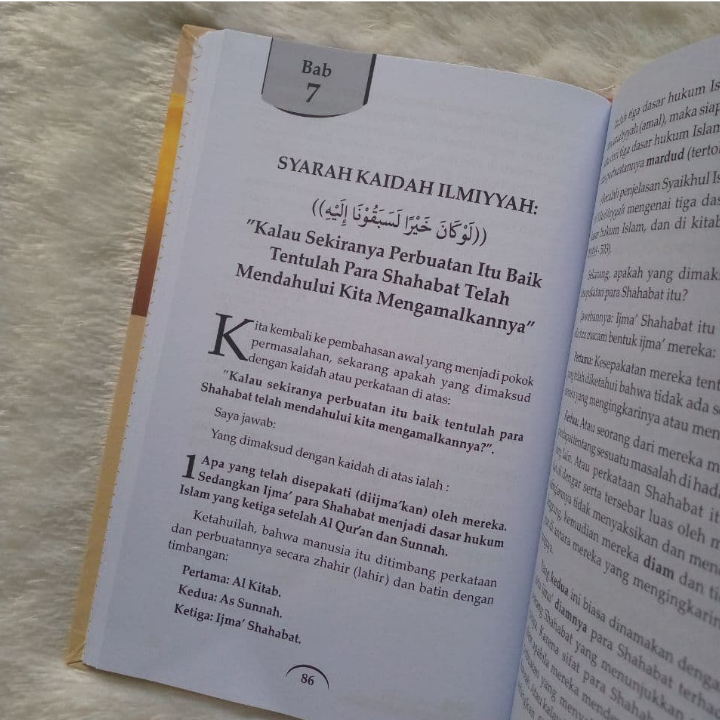 Bab
7
SYARAH KAIDAH ILMIYYAH:
((لَوْ كَانَ خَيْرًا لَسَبَقُوْنَا إِلَيْهِ))
"Kalau Sekiranya Perbuatan Itu Baik
Tentulah Para Shahabat Telah
Mendahului Kita Mengamalkannya"
Kita kembali ke pembahasan awal yang menjadi pokok
permasalahan, sekarang apakah yang dimaksud
dengan kaidah atau perkataan di atas:
"Kalau sekiranya perbuatan itu baik tentulah para
Shahabat telah mendahului kita mengamalkannya?".
Saya jawab:
Yang dimaksud dengan kaidah di atas ialah :
1 Apa yang telah disepakati (diijma'kan) oleh mereka.
Sedangkan Ijma' para Shahabat menjadi dasar hukum
Islam yang ketiga setelah Al Qur'an dan Sunnah.
Ketahuilah, bahwa manusia itu ditimbang perkataan
dan perbuatannya secara zhahir (lahir) dan batin dengan
timbangan:
Pertama: Al Kitab.
Kedua: As Sunnah.
Ketiga: Ijma' Shahabat.
86
tiga dasar hukum
(amal), maka
tiga dasar hukum Islam
mardud
penjelasan Syaikhul
mengenai tiga
hukum Islam, dan di
apakah yang
para Shahabat itu?
Ijma' Shahabat itu
macam bentuk ijma' mereka:
Kesepakatan mereka
diketahui bahwa tidak ada
yang mengingkarinya atau
Atau seorang dari mereka
tentang sesuatu masalah di
lain. Atau perkataan Shahabat
dengar serta tersebar luas oleh
tidak menyaksikan dan
kemudian mereka diam dan
di antara mereka yang
kedua ini biasa dinamakan
diamnya para Shahabat
Shahabat yang menunjukkan
Karena sifat para Shahabat
mereka
yang